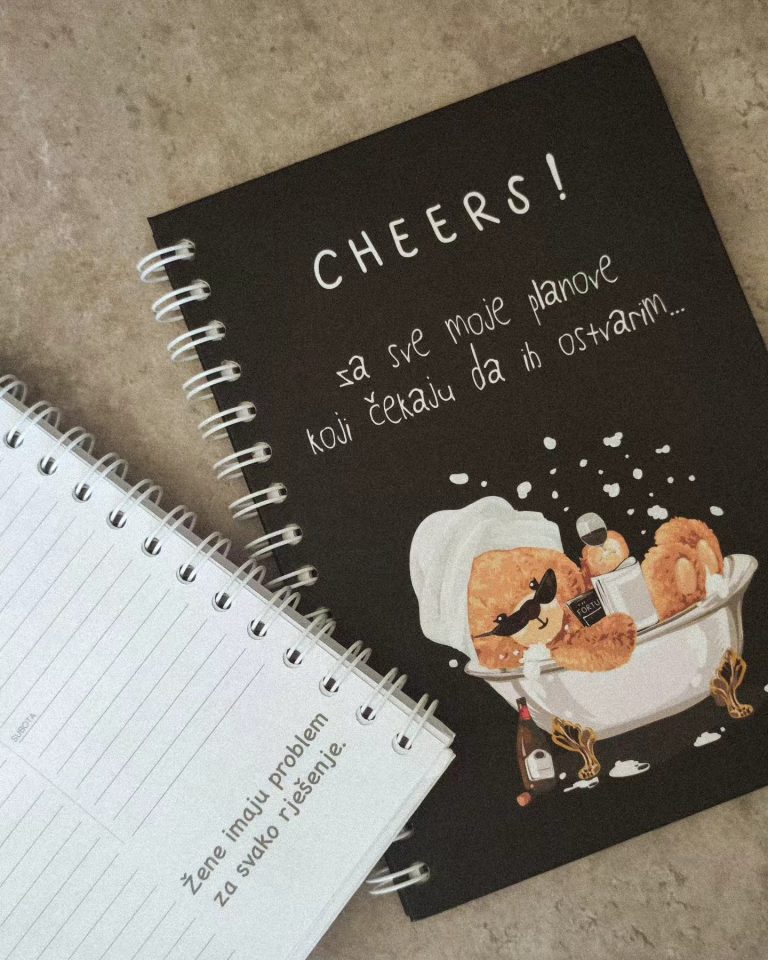 CHEERS!
za sve moje planove
koji čekaju da ih ostvarim...
SUBOTA
Žene imaju problem
za svako rješenje.